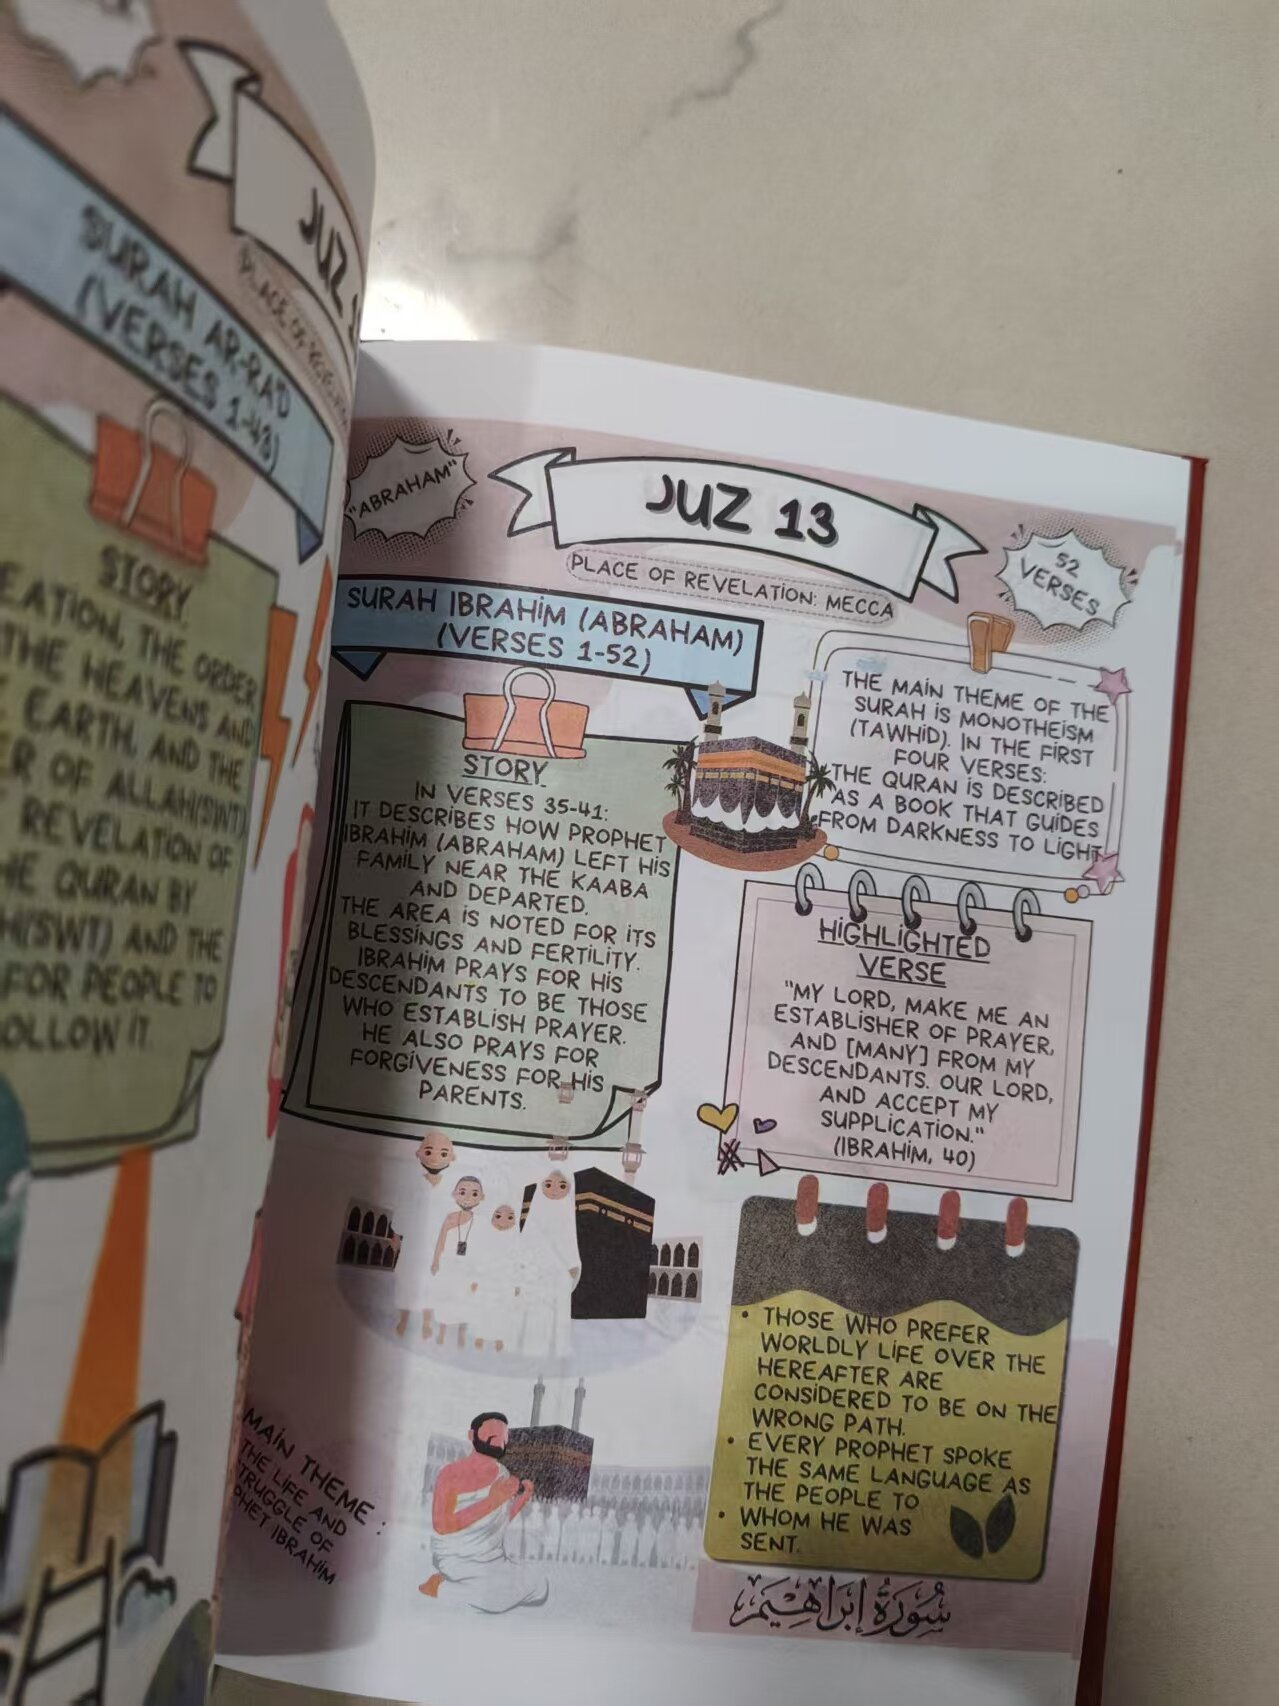 JUZ 1
PLACE OF REVELATION
SURAH AR-RA'D
(VERSES 1-43)
STORY
EATION, THE ORDER
THE HEAVENS AND
EARTH, AND THE
ER OF ALLAH(SWT)
REVELATION OF
HE QURAN BY
H(SWT) AND THE
FOR PEOPLE TO
OLLOW IT.
"ABRAHAM"
JUZ 13
PLACE OF REVELATION: MECCA
52
VERSES
SURAH IBRAHIM (ABRAHAM)
(VERSES 1-52)
STORY
IN VERSES 35-41:
IT DESCRIBES HOW PROPHET
IBRAHIM (ABRAHAM) LEFT HIS
FAMILY NEAR THE KAABA
AND DEPARTED.
THE AREA IS NOTED FOR ITS
BLESSINGS AND FERTILITY.
IBRAHIM PRAYS FOR HIS
DESCENDANTS TO BE THOSE
WHO ESTABLISH PRAYER.
HE ALSO PRAYS FOR
FORGIVENESS FOR HIS
PARENTS.
THE MAIN THEME OF THE
SURAH IS MONOTHEISM
(TAWHID). IN THE FIRST
FOUR VERSES:
THE QURAN IS DESCRIBED
AS A BOOK THAT GUIDES
FROM DARKNESS TO LIGHT
HIGHLIGHTED
VERSE
"MY LORD, MAKE ME AN
ESTABLISHER OF PRAYER,
AND [MANY] FROM MY
DESCENDANTS. OUR LORD,
AND ACCEPT MY
SUPPLICATION."
(IBRAHIM, 40)
• THOSE WHO PREFER
WORLDLY LIFE OVER THE
HEREAFTER ARE
CONSIDERED TO BE ON THE
WRONG PATH.
• EVERY PROPHET SPOKE
THE SAME LANGUAGE AS
THE PEOPLE TO
• WHOM HE WAS
SENT.
MAIN THEME :
THE LIFE AND
TRUGGLE OF
PHET IBRAHIM
سُورَةُ إِبْرَاهِيمَ